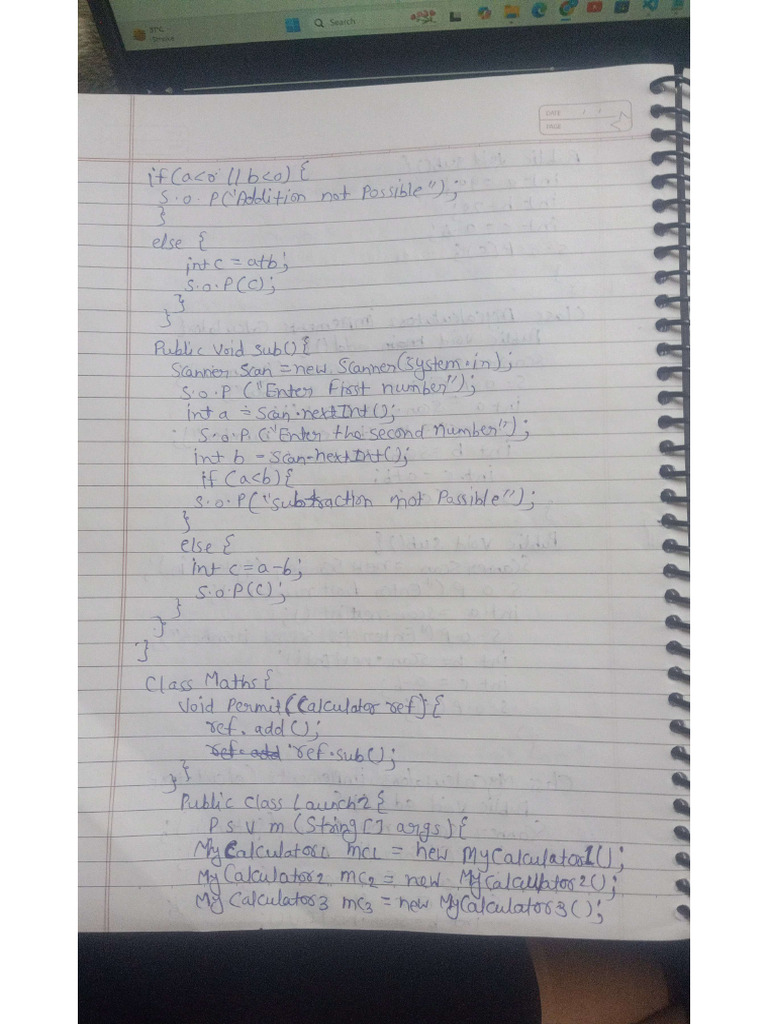 31°C
Smoke
Search
DATE / /
PAGE
if(a<0 || b<0) {
S.O.P("Addition not Possible");
}
else {
int c = a+b;
S.O.P(C);
}
}
Public Void Sub() {
Scanner Scan = new Scanner(System.in);
S.O.P ("Enter First number");
int a = Scan.nextInt();
S.O.P ("Enter the second number");
int b = Scan.nextInt();
if (a<b){
S.O.P("Subtraction not Possible");
}
else {
int c = a-b;
S.O.P(C);
}
}
}
Class Maths {
Void Permit(Calculator ref) {
ref. add();
ref.add ref.sub();
} }
Public Class Launch2 {
P S V m (String[] args) {
My Calculator1 mc1 = new MyCalculator1();
My Calculator2 mc2 = new MyCalculator2();
My Calculator3 mc3 = new MyCalculator3();